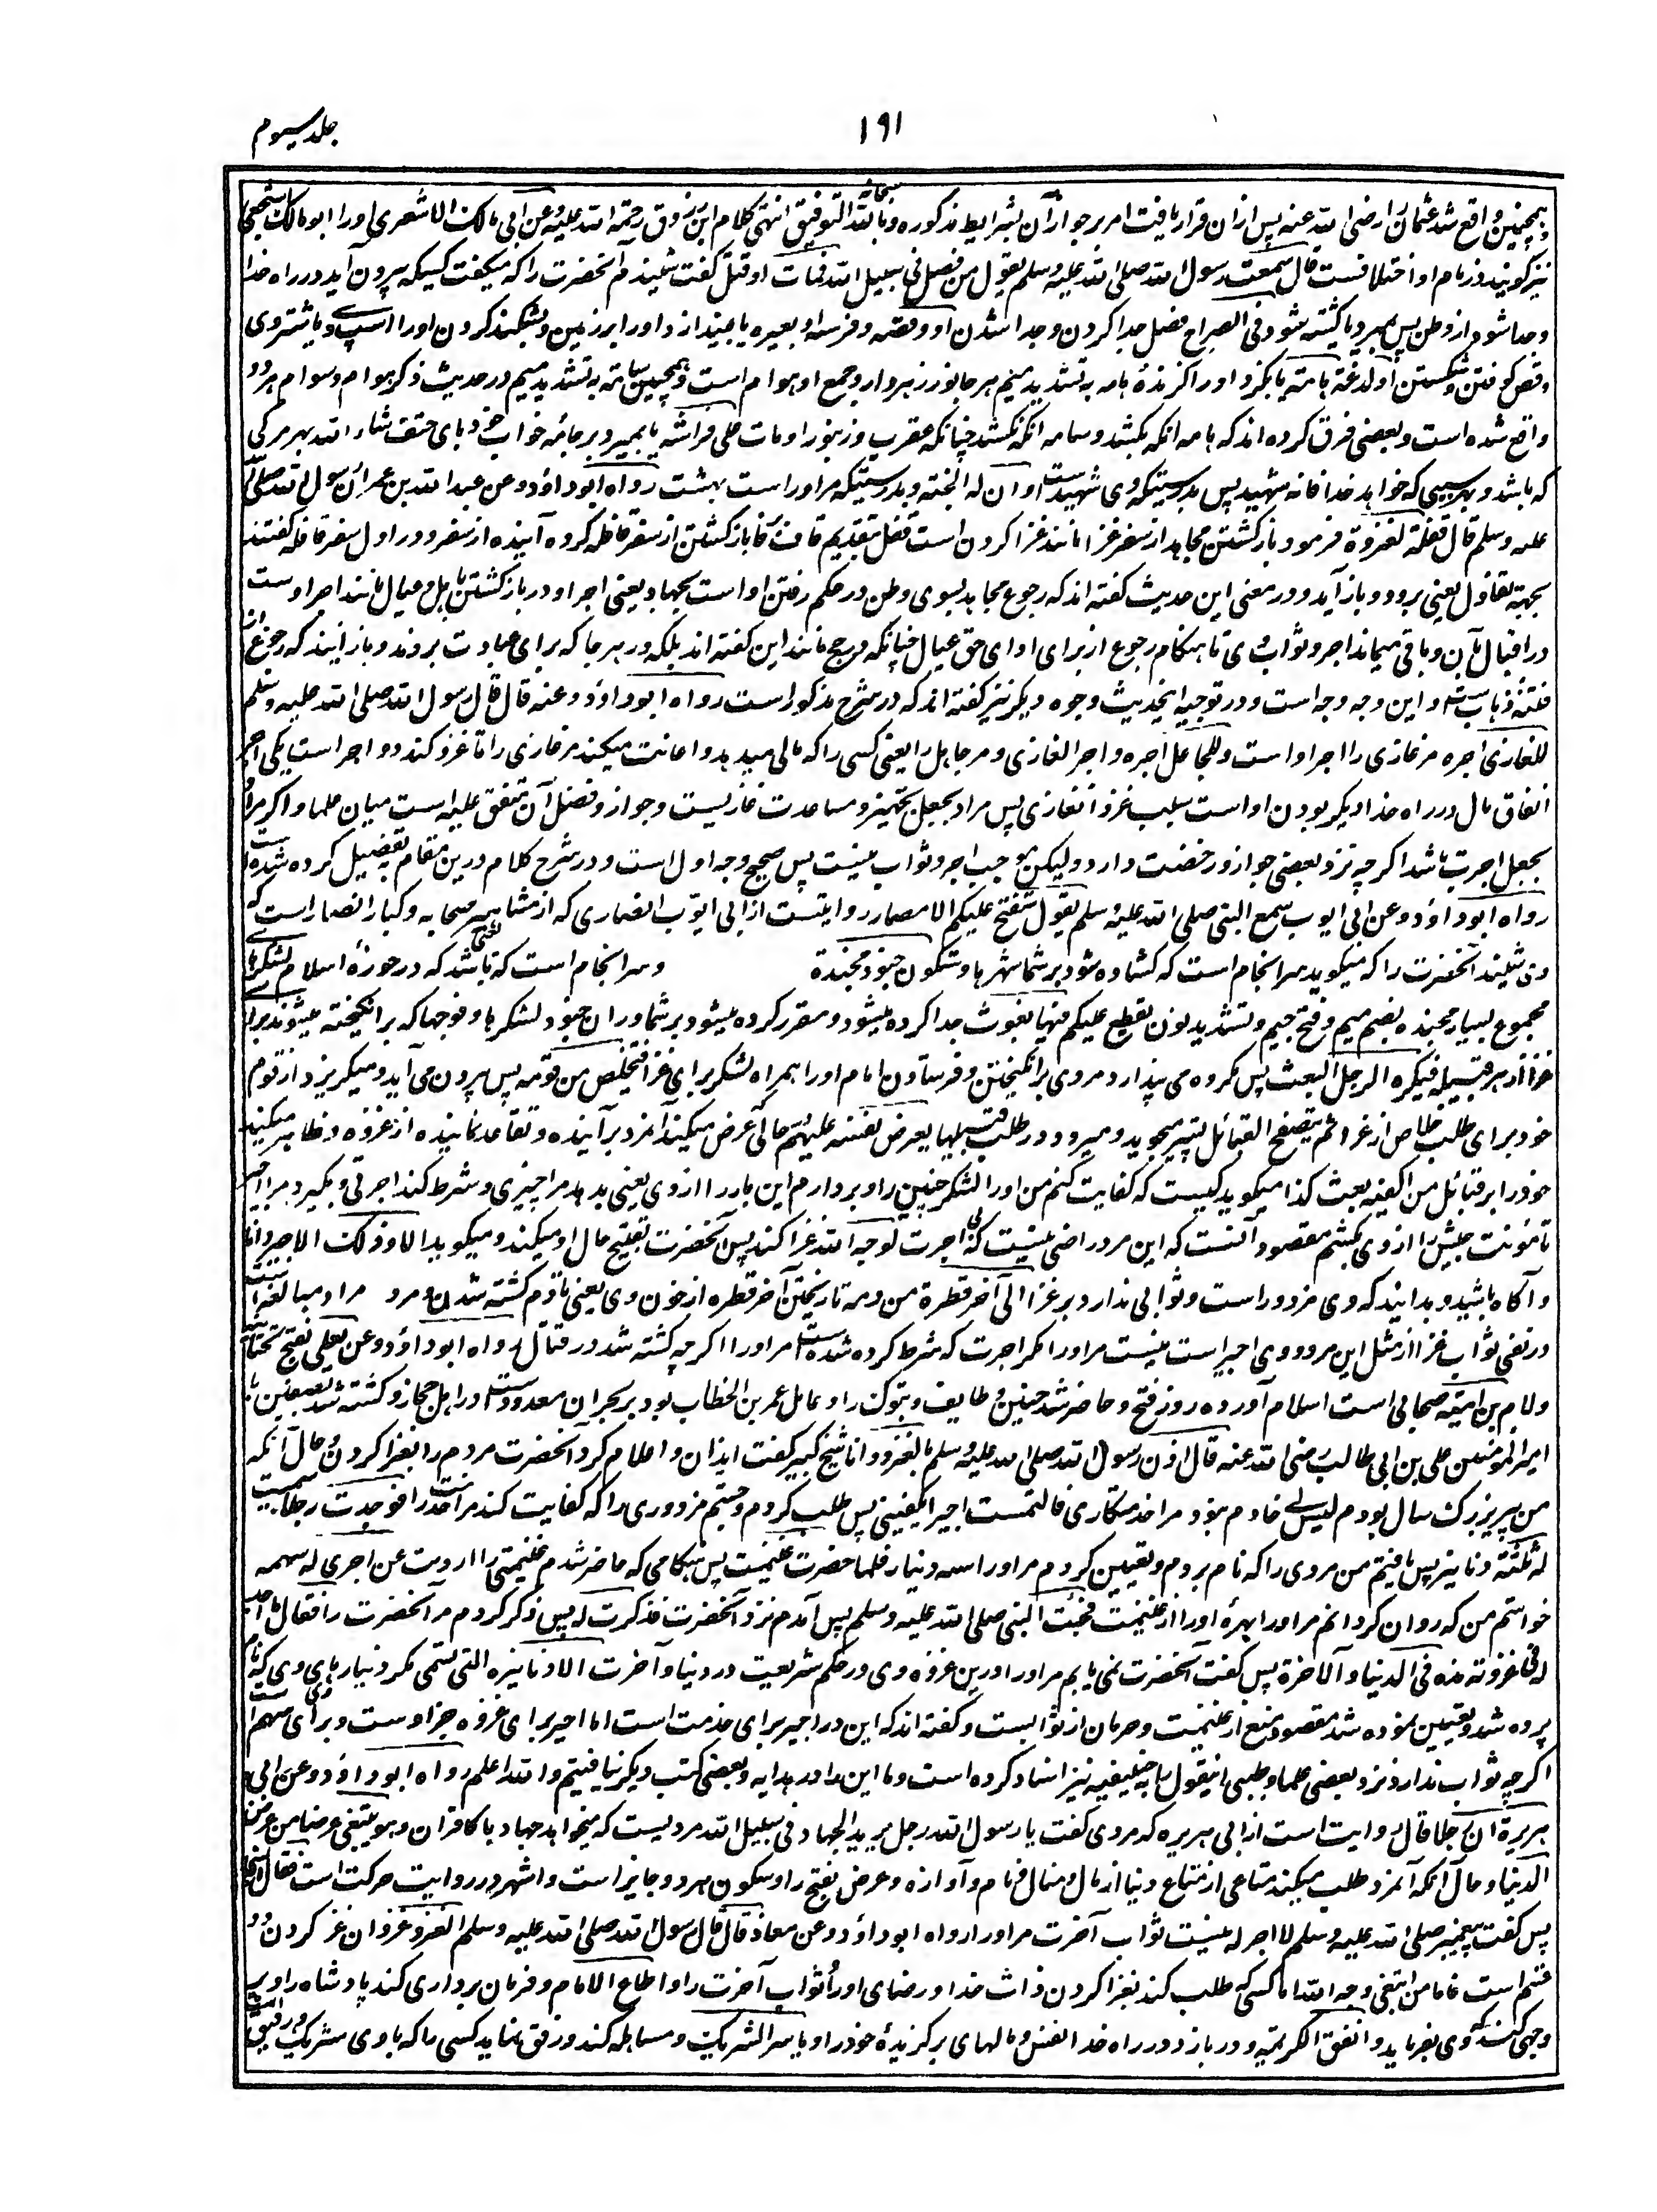 جلد سیوم
۱۹۱
و همچنین واقع شد عثمان را رضی الله عنه پس ازان قرار یافت امر بر جواز آن بشرایط مذکوره و بالله سبحانه التوفیق انتهی کلام ابن زروق رحمة الله علیه وعن ابی مالک الاشعری اورا ابو مالک اشجعی
نیز گویند و در نام او اختلافست قال سمعت رسول الله صلی الله علیه وسلم یقول من فصل فی سبیل الله فمات او قتل گفت شنیدم آنحضرت را که میگفت کسیکه بیرون آید در راه خدا
و جدا شود از وطن پس بمیرد یا کشته شود فی الصراح فصل جدا کردن و جدا شدن او وقصه فرسه او بعیره یا بیندازد اورا بر زمین و بشکند گردن اورا اسپ وی یا شتر وی
وقص کوفتن و شکستن او لدغته هامة یا بگزد اورا گزنده هامه به تشدید میم هر جانور زهردار و جمع او هوام است و همچنین سامه به تشدید میم در حدیث ذکر هوام و سوام هر دو
واقع شده است و بعضی فرق کرده اند که هامه آنکه بکشد و سامه آنکه نکشد چنانکه عقرب و زنبور او مات علی فراشه یا بمیرد بر جامه خواب خود بای حتف شاء الله بهر مرگی
که باشد و بهر سببی که خواهد خدا فانه شهید پس بدرستیکه وی شهیدست و ان له الجنة و بدرستیکه مر اوراست بهشت رواه ابوداؤد وعن عبدالله بن عمر ان رسول الله صلی الله
علیه وسلم قال قفلة کغزوة فرمود بازگشتن مجاهد از سفر غزا مانند غزا کردن است قفل بتقدیم قاف بر فا بازگشتن از سفر قافله گروه آینده از سفر و در اول سفر قافله گفتند
بجهة تفاول یعنی برود و باز آید و در معنی این حدیث گفته اند که رجوع مجاهد بسوی وطن در حکم رفتن او است بجهاد یعنی اجر او در بازگشتن باهل و عیال مانند اجر اوست
در اقبال بآن و باقی میماند اجر و ثواب وی تا هنگام رجوع از برای ادای حق عیال چنانکه در حج مانند این گفته اند بلکه در هر جا که برای عبادت بروند و باز آیند که رجوع ازان
و این وجه وجه است و در توجیه اینحدیث وجوه دیگر نیز گفته اند که در شرح مذکور است رواه ابوداؤد وعنه قال قال رسول الله صلی الله علیه وسلم
للغازی اجره مر غازی را اجر او است وللجاعل اجره واجر الغازی و مر جاعل را یعنی کسی را که مالی میدهد و اعانت میکند مر غازی را تا غزو کند دو اجر است یکی اجر
انفاق مال در راه خدا دیگر بودن او است سبب غزو آن غازی پس مراد بجعل تجهیز و مساعدت غازیست و جواز و فضل آن متفق علیه است میان علما و اگر مراد
بجعل اجرت باشد اگر چه نزد بعضی جواز و رخصت دارد ولیکن موجب اجر و ثواب نیست پس صحیح وجه اول است و در شرح کلام درین مقام به تفصیل کرده شده است
رواه ابوداؤد وعن ابی ایوب سمع النبی صلی الله علیه وسلم یقول ستفتح علیکم الامصار روایتست از ابی ایوب انصاری که از مشاهیر صحابه و کبار انصار است که
وی شنید آنحضرت را که میگوید سرانجام است که گشاده شود بر شما شهرها وستکون جنود مجندة و سرانجام است که باشد که در حوزهٔ اسلام لشکرهای
مجموع بسیار مجنده بضم میم و فتح جیم و تشدید نون یقطع علیکم فیها بعوث جدا کرده میشود و مقرر کرده میشود بر شما دران جنود لشکرها و فوجها که برانگیخته میشوند برای
غزا از هر قبیله فیکره الرجل البعث پس مکروه می پندارد مردی برانگیختن و فرستادن امام اورا همراه لشکر برای غزا فیتخلص من قومه پس بیرون می آید و میگریزد از قوم
خود برای طلب خلاص از غزا ثم یتصفح القبائل پستر میجوید و میرود در طلب قبیلها یعرض نفسه علیهم حالی که عرض میکند آنمرد برآینده و تقاعد نماینده از غزوه و ظاهر میکند
خود را بر قبائل من اکفیه بعث کذا میگوید کیست که کفایت کنم من اورا لشکر چنین را و بردارم این بار را از وی یعنی بدهد مرا چیزی و شرط کند اجرتی و بگیرد مرا اجیر
تا مؤنت جیش را از وی بکشم مقصود آنست که این مرد راضی نیست که بی اجرت لوجه الله غزا کند پس آنحضرت تقبیح حال او میکند و میگوید الا وذلک الاجیر دانا
و آگاه باشید و بدانید که وی مزدور است و ثوابی ندارد بر غزا الی آخر قطرة من دمه تا ریختن آخر قطره از خون وی یعنی تا دم کشته شدن و مرد مراد مبالغه است
در نفی ثواب غزا از مثل این مرد و وی اجیر است نیست مر اورا مگر اجرت که شرط کرده شده است مر اورا اگر چه کشته شد در قتال رواه ابوداؤد وعن یعلی بفتح تحتانیه
ولام بن امیة صحابی است اسلام آورده روز فتح و حاضر شد حنین و طایف و تبوک را و عامل عمر بن الخطاب بود بر نجران معدودست در اهل حجاز و کشته شد بصفین با
امیرالمؤمنین علی بن ابی طالب رضی الله عنه قال اذن رسول الله صلی الله علیه وسلم بالغزو وانا شیخ کبیر گفت ایذان و اعلام کرد آنحضرت مردم را بغزا کردن و حال آنکه
من پیر بزرگ سال بودم لیس لی خادم نبود مرا خدمتگاری فالتمست اجیرا یکفینی پس طلب کردم و جستم مزدوری را که کفایت کند مرا خدمت را فوجدت رجلا سمیت
له ثلثة دنانیر پس یافتم من مردی را که نام بردم و تعیین کردم مر اورا سه دینار فلما حضرت غنیمت پس هنگامی که حاضر شدم غنیمتی را اردت عن اجری له سهمه
خواستم من که روان گردانم مر اورا بهرهٔ اورا از غنیمت فجئت النبی صلی الله علیه وسلم پس آمدم نزد آنحضرت فذکرت له پس ذکر کردم مر آنحضرت را فقال ما اجد
له فی غزوته هذه فی الدنیا والآخرة پس گفت آنحضرت نمی یابم مر اورا درین غزوه وی در حکم شریعت در دنیا و آخرت الا دنانیره التی تسمی مگر دینارهای وی که نام
برده شد و تعیین نموده شد مقصود منع از غنیمت و حرمان از ثوابست و گفته اند که این در اجیر برای خدمت است اما اجیر برای غزوه جزاوست و برای وی سهم است
اگر چه ثواب ندارد نزد بعضی علما و طیبی اینقول به حنیفیه نیز اسناد کرده است و ما این را در هدایه و بعضی کتب دیگر نیافتیم والله اعلم رواه ابوداؤد وعن ابی
هریرة ان رجلا قال روایت است از ابی هریره که مردی گفت یا رسول الله رجل یرید الجهاد فی سبیل الله مردیست که میخواهد جهاد با کافران وهو یبتغی عرضا من عرض
الدنیا و حال آنکه آنمرد طلب میکند متاعی از متاع دنیا از مال و منال و نام و آوازه و عرض بفتح را و سکون هر دو جایز است و اشهر در روایت حرکت است فقال النبی
پس گفت پیغمبر صلی الله علیه وسلم لا اجر له نیست ثواب آخرت مر اورا رواه ابوداؤد وعن معاذ قال قال رسول الله صلی الله علیه وسلم الغزو غزوان غزا کردن دو
قسم است فاما من ابتغی وجه الله اما کسی که طلب کند بغزا کردن ذات خدا و رضای او و ثواب آخرت را واطاع الامام و فرمان برداری کند پادشاه را و بر
وجهی کند که وی بفرماید وانفق الکریمة و دربازد در راه خدا نفس و مالهای برگزیدهٔ خود را ویاسر الشریک و مساهله کند و رفق نماید کسی را که با وی شریک و رفیق است